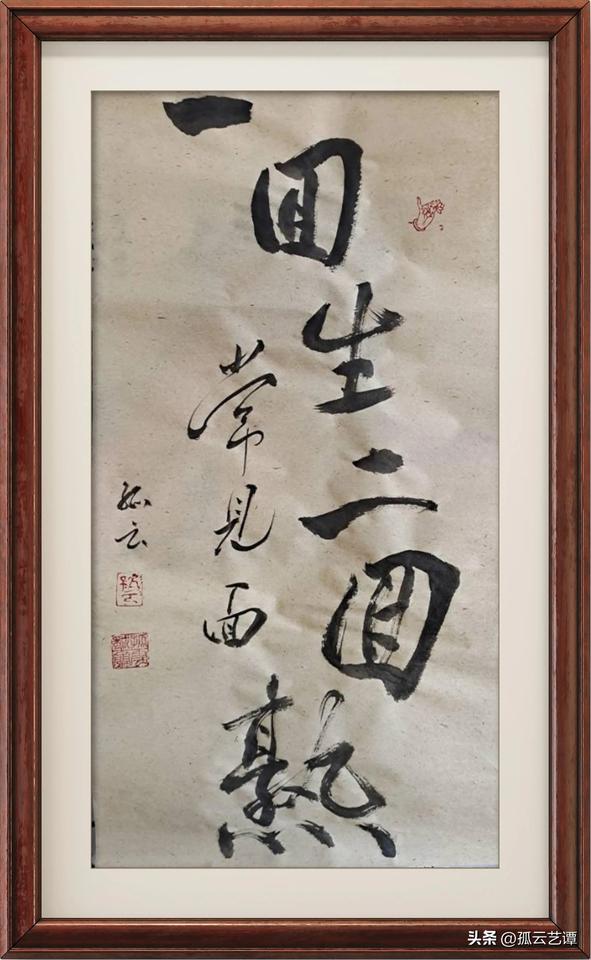 一回生二回熟
常見面
孤云
头条 @孤云艺谭